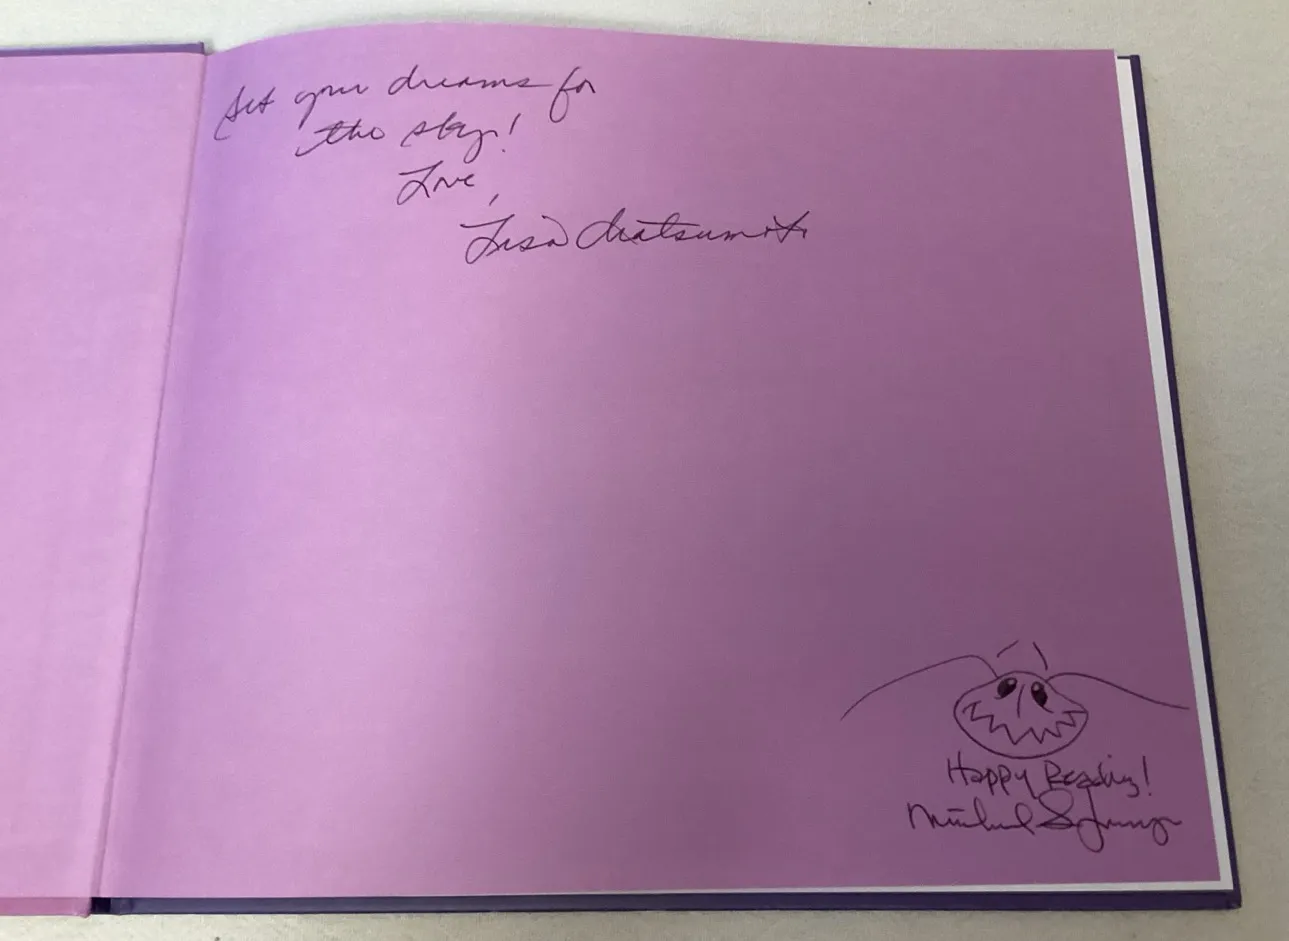 Set your dreams for
the sky!
Love,
Lisa Matsumoto
Happy Reading!
Michael